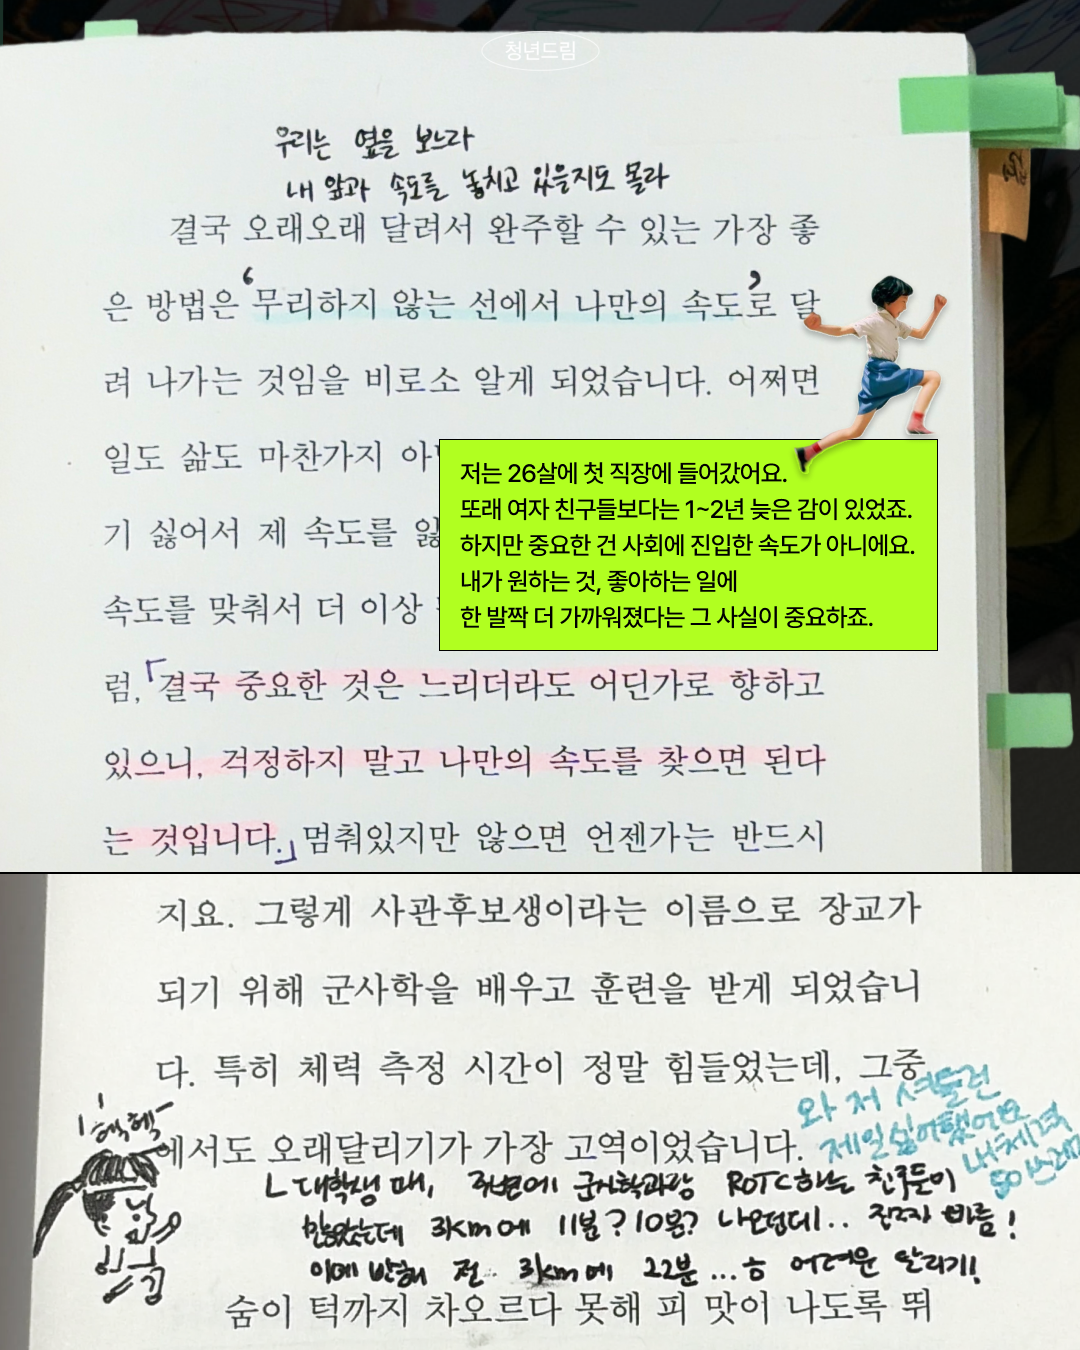 청년드림
우리는 옆을 보느라
내 앞과 속도를 놓치고 있을지도 몰라
결국 오래오래 달려서 완주할 수 있는 가장 좋
은 방법은 ‘무리하지 않는 선에서 나만의 속도’로 달
려 나가는 것임을 비로소 알게 되었습니다. 어쩌면
일도 삶도 마찬가지
기 싫어서 제 속도를
속도를 맞춰서 더 이상
럼,「결국 중요한 것은 느리더라도 어딘가로 향하고
있으니, 걱정하지 말고 나만의 속도를 찾으면 된다
는 것입니다.」멈춰있지만 않으면 언젠가는 반드시
저는 26살에 첫 직장에 들어갔어요.
또래 여자 친구들보다는 1~2년 늦은 감이 있었죠.
하지만 중요한 건 사회에 진입한 속도가 아니에요.
내가 원하는 것, 좋아하는 일에
한 발짝 더 가까워졌다는 그 사실이 중요하죠.
지요. 그렇게 사관후보생이라는 이름으로 장교가
되기 위해 군사학을 배우고 훈련을 받게 되었습니
다. 특히 체력 측정 시간이 정말 힘들었는데, 그중
에서도 오래달리기가 가장 고역이었습니다.
와 저 셔틀런
제일 싫어했어요
내 체력
쓰레기
헥헥
ㄴ 대학생 때, 주변에 군사학과랑 ROTC하는 친구들이
많았는데 3km에 11분? 10분? 나오던데.. 진짜 빠름!
이에 반해 전.. 3km에 22분...ㅎ 어려운 달리기!
숨이 턱까지 차오르다 못해 피 맛이 나도록 뛰